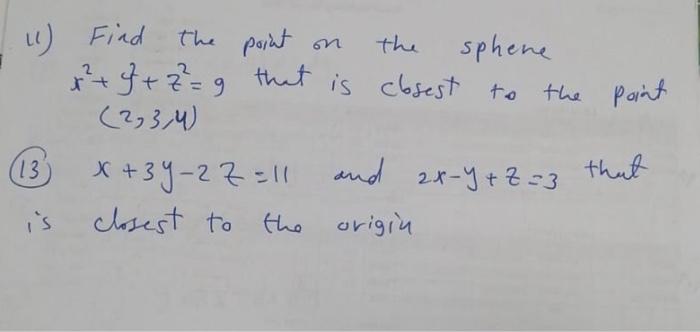 11) Find the point on the sphene
x²+y²+z²=9 that is closest to the point
(2,3,4)
13 x+3y-2z=11 and 2x-y+z=3 that
is closest to the origin